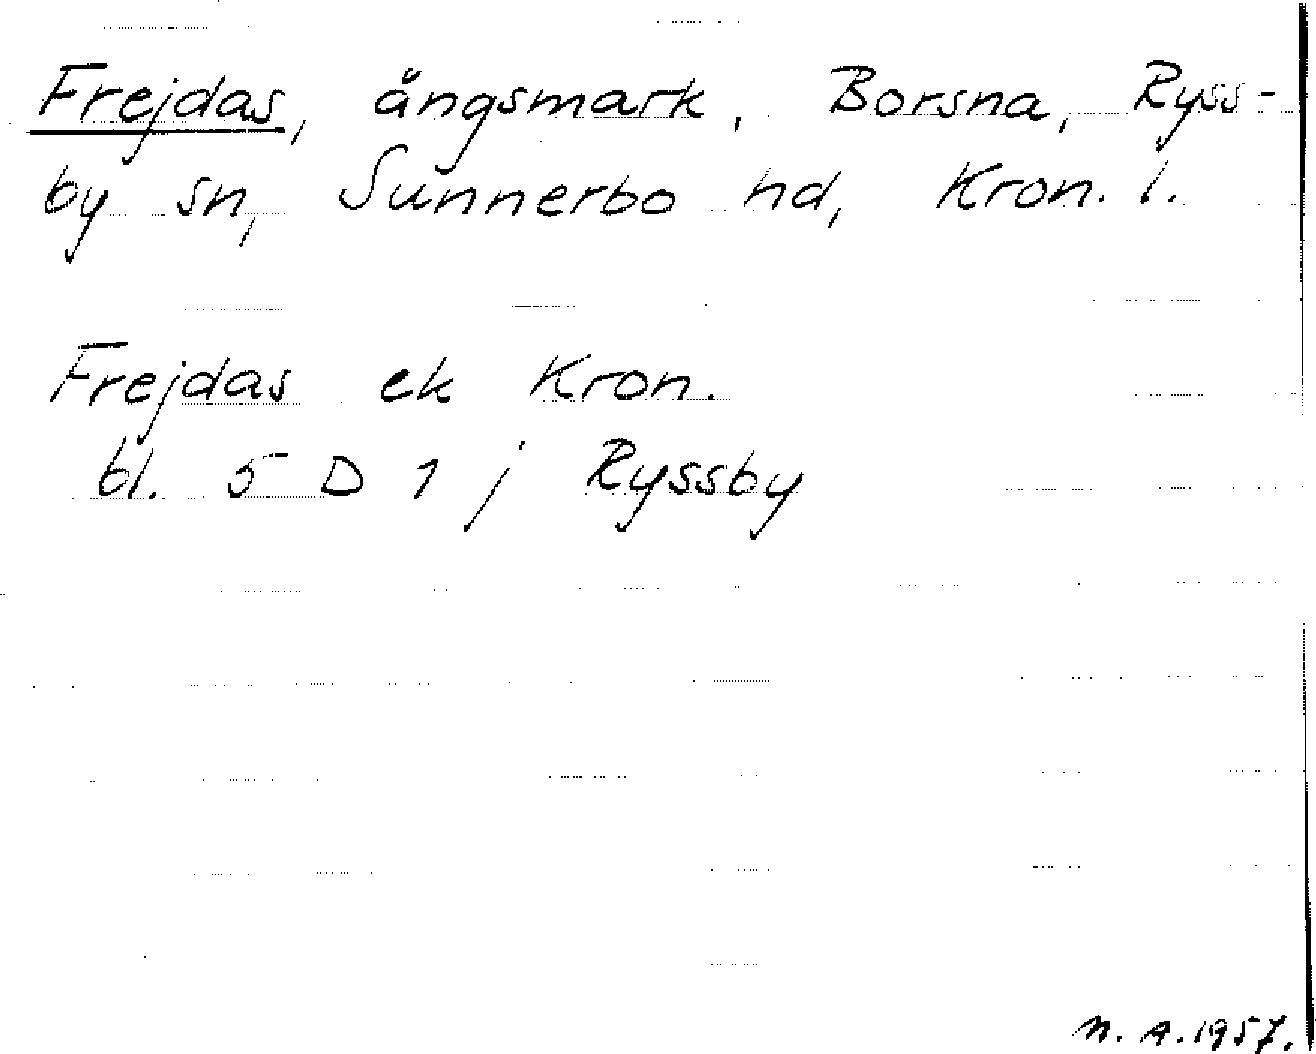 Frejdas, ängsmark, Borsna, Ryss-
by sn, Sunnerbo hd, Kron. l.
Frejdas ek Kron.
bl. 5 D 1 j Ryssby
N. A. 1957.